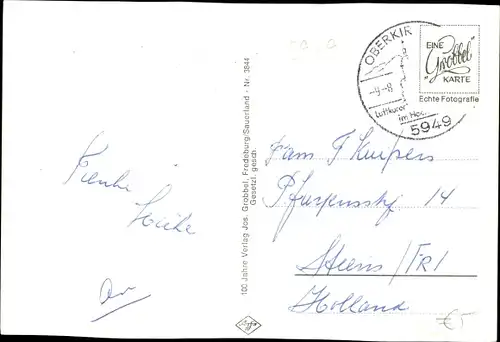 OBERKIR
-9.-8
Luftkuror
im Hoc
5949
EINE
"Grobbel"
KARTE
Echte Fotografie
100 Jahre Verlag Jos. Grobbel, Fredeburg/Sauerland - Nr. 3844
Gesetzl. gesch.
Fam T Kuipers
14
Stiens/FR1
Holland
Agfa
€5